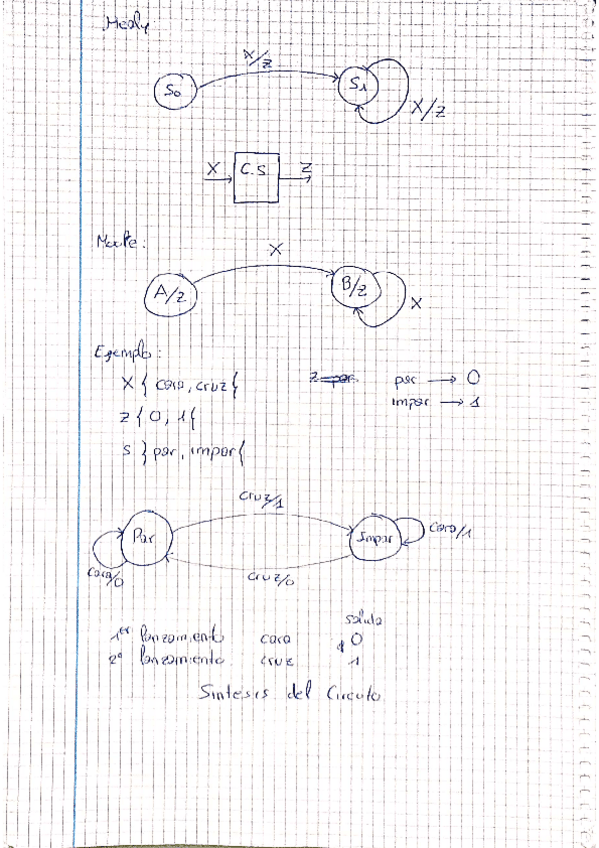 Mealy
X/z
S0
S1
X/z
X C.S. Z
X
A/z
B/z
X
Ejemplo:
X { cara, cruz {
par → 0
impar → 1
z { 0, 1 {
S } par, impar {
cruz/1
Par
Impar
cara/1
cara/0
cruz/0
salida
1er lanzamiento cara 0
2º lanzamiento cruz 1
Síntesis del Circuito